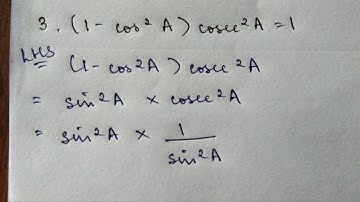 3. (1 - cos²A) cosec²A = 1
LHS
(1 - cos²A) cosec²A
= sin²A × cosec²A
= sin²A × 1/sin²A